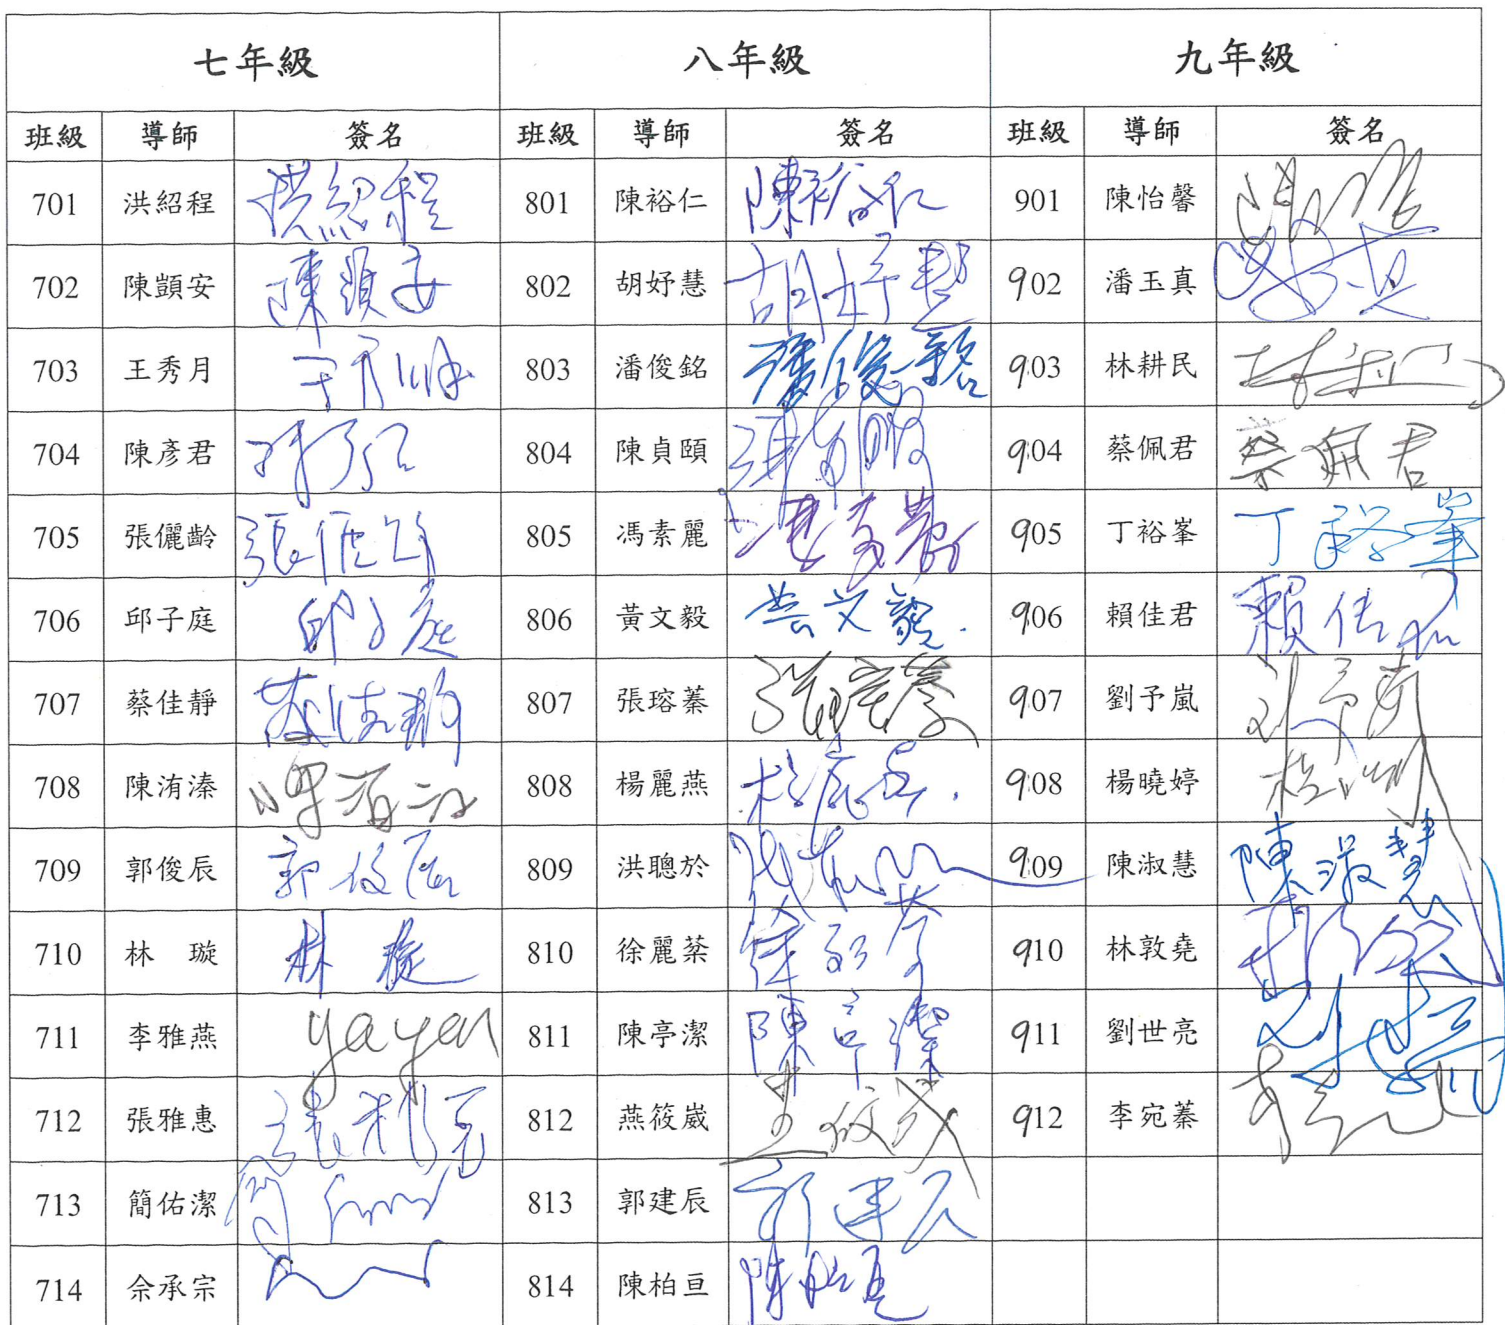 七年級 八年級 九年級
班級 導師 簽名 班級 導師 簽名 班級 導師 簽名
701 洪紹程 洪紹程 801 陳裕仁 陳裕仁 901 陳怡馨
702 陳顗安 陳顗安 802 胡妤慧 胡妤慧 902 潘玉真
703 王秀月 803 潘俊銘 潘俊銘 903 林耕民
704 陳彥君 804 陳貞頤 904 蔡佩君 蔡佩君
705 張儷齡 805 馮素麗 905 丁裕峯 丁裕峯
706 邱子庭 邱子庭 806 黃文毅 黃文毅 906 賴佳君 賴佳君
707 蔡佳靜 蔡佳靜 807 張瑢蓁 907 劉予嵐
708 陳洧溱 808 楊麗燕 908 楊曉婷
709 郭俊辰 郭俊辰 809 洪聰於 909 陳淑慧 陳淑慧
710 林 璇 林 璇 810 徐麗棻 910 林敦堯
711 李雅燕 yayen 811 陳亭潔 陳亭潔 911 劉世亮
712 張雅惠 812 燕筱崴 912 李宛蓁
713 簡佑潔 813 郭建辰
714 佘承宗 814 陳柏亘